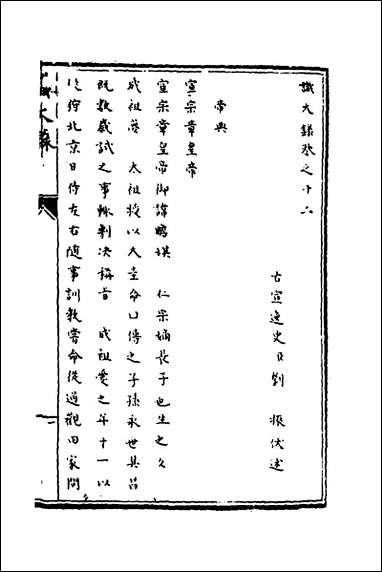 識大錄卷之十六
古宣逸史臣劉 振伏述
帝典
宣宗章皇帝
宣宗章皇帝御諱瞻 仁宗嫡長子也生之夕
成祖夢 太祖授以大圭命曰傳之子孫永世其昌
既數歲試之事輒剖決稱旨 成祖愛之年十一以
從狩北京日侍左右隨事訓教嘗命從過觀田家問
大錄